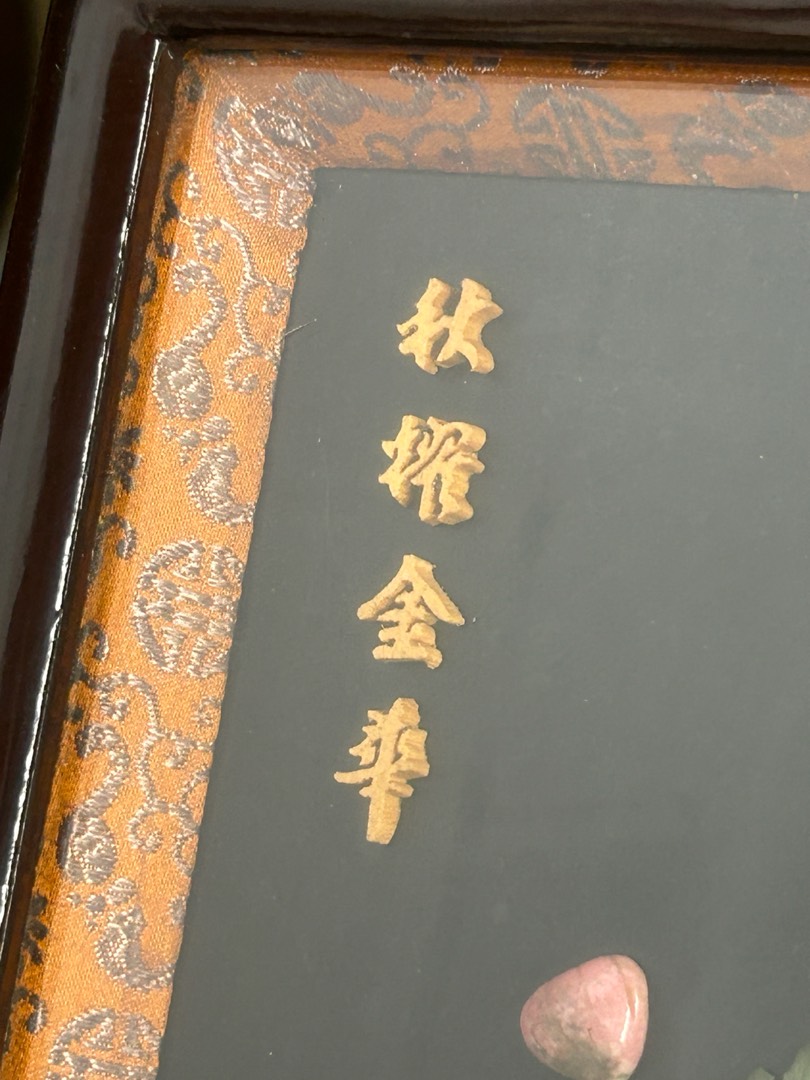 秋耀金華